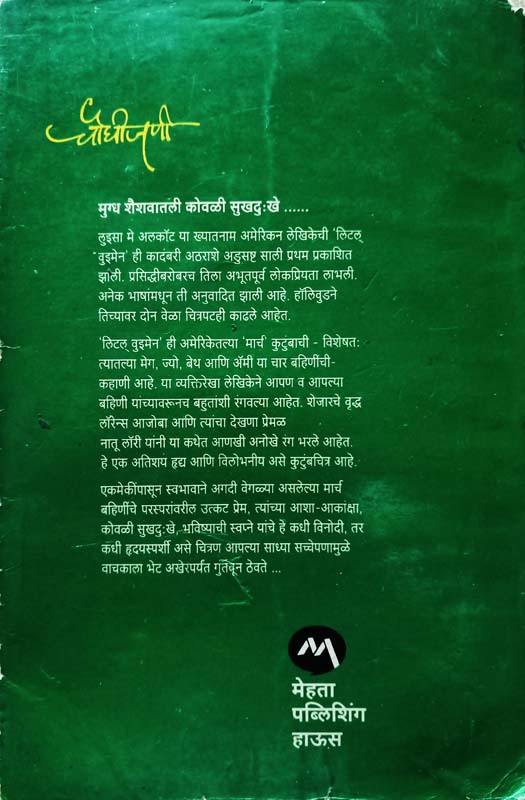 चौघीजणी
मुग्ध शैशवातली कोवळी सुखदुःखे ......
लुइसा मे अलकॉट या ख्यातनाम अमेरिकन लेखिकेची 'लिटल्
वुइमेन' ही कादंबरी अठराशे अडुसष्ट साली प्रथम प्रकाशित
झाली. प्रसिद्धीबरोबरच तिला अभूतपूर्व लोकप्रियता लाभली.
अनेक भाषांमधून ती अनुवादित झाली आहे. हॉलिवुडने
तिच्यावर दोन वेळा चित्रपटही काढले आहेत.
'लिटल् वुइमेन' ही अमेरिकेतल्या 'मार्च' कुटुंबाची - विशेषतः
त्यातल्या मेग, ज्यो, बेथ आणि ॲमी या चार बहिणींची-
कहाणी आहे. या व्यक्तिरेखा लेखिकेने आपण व आपल्या
बहिणी यांच्यावरूनच बहुतांशी रंगवल्या आहेत. शेजारचे वृद्ध
लॉरेन्स आजोबा आणि त्यांचा देखणा प्रेमळ
नातू लॉरी यांनी या कथेत आणखी अनोखे रंग भरले आहेत.
हे एक अतिशय हृद्य आणि विलोभनीय असे कुटुंबचित्र आहे.
एकमेकींपासून स्वभावाने अगदी वेगळ्या असलेल्या मार्च
बहिणींचे परस्परांवरील उत्कट प्रेम, त्यांच्या आशा-आकांक्षा,
कोवळी सुखदुःखे, भविष्याची स्वप्ने यांचे हे कधी विनोदी, तर
कधी हृदयस्पर्शी असे चित्रण आपल्या साध्या सच्चेपणामुळे
वाचकाला थेट अखेरपर्यंत गुंतवून ठेवते ...
मेहता
पब्लिशिंग
हाऊस